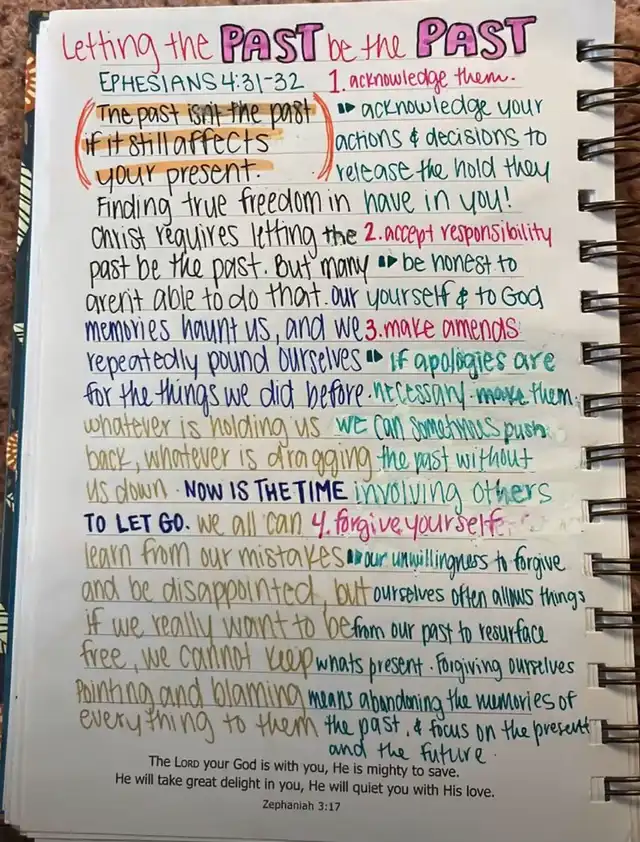 Letting the PAST be the PAST
EPHESIANS 4:31-32
The past isn't the past
if it still affects
your present.
Finding true freedom in
Christ requires letting the
past be the past. But many
aren't able to do that. our
memories haunt us, and we
repeatedly pound ourselves
for the things we did before.
whatever is holding us
back, whatever is dragging
us down. NOW IS THE TIME
TO LET GO. we all can
learn from our mistakes
and be disappointed, but
if we really want to be
free, we cannot keep
pointing and blaming
everything to them
1. acknowledge them.
acknowledge your
actions & decisions to
release the hold they
have in you!
2. accept responsibility
be honest to
yourself & to God
3. make amends
if apologies are
necessary. make them.
we can sometimes push
the past without
involving others
4. forgive yourself
our unwillingness to forgive
ourselves often allows things
from our past to resurface
whats present. Forgiving ourselves
means abandoning the memories of
the past, & focus on the present
and the future.
The LORD your God is with you, He is mighty to save.
He will take great delight in you, He will quiet you with His love.
Zephaniah 3:17